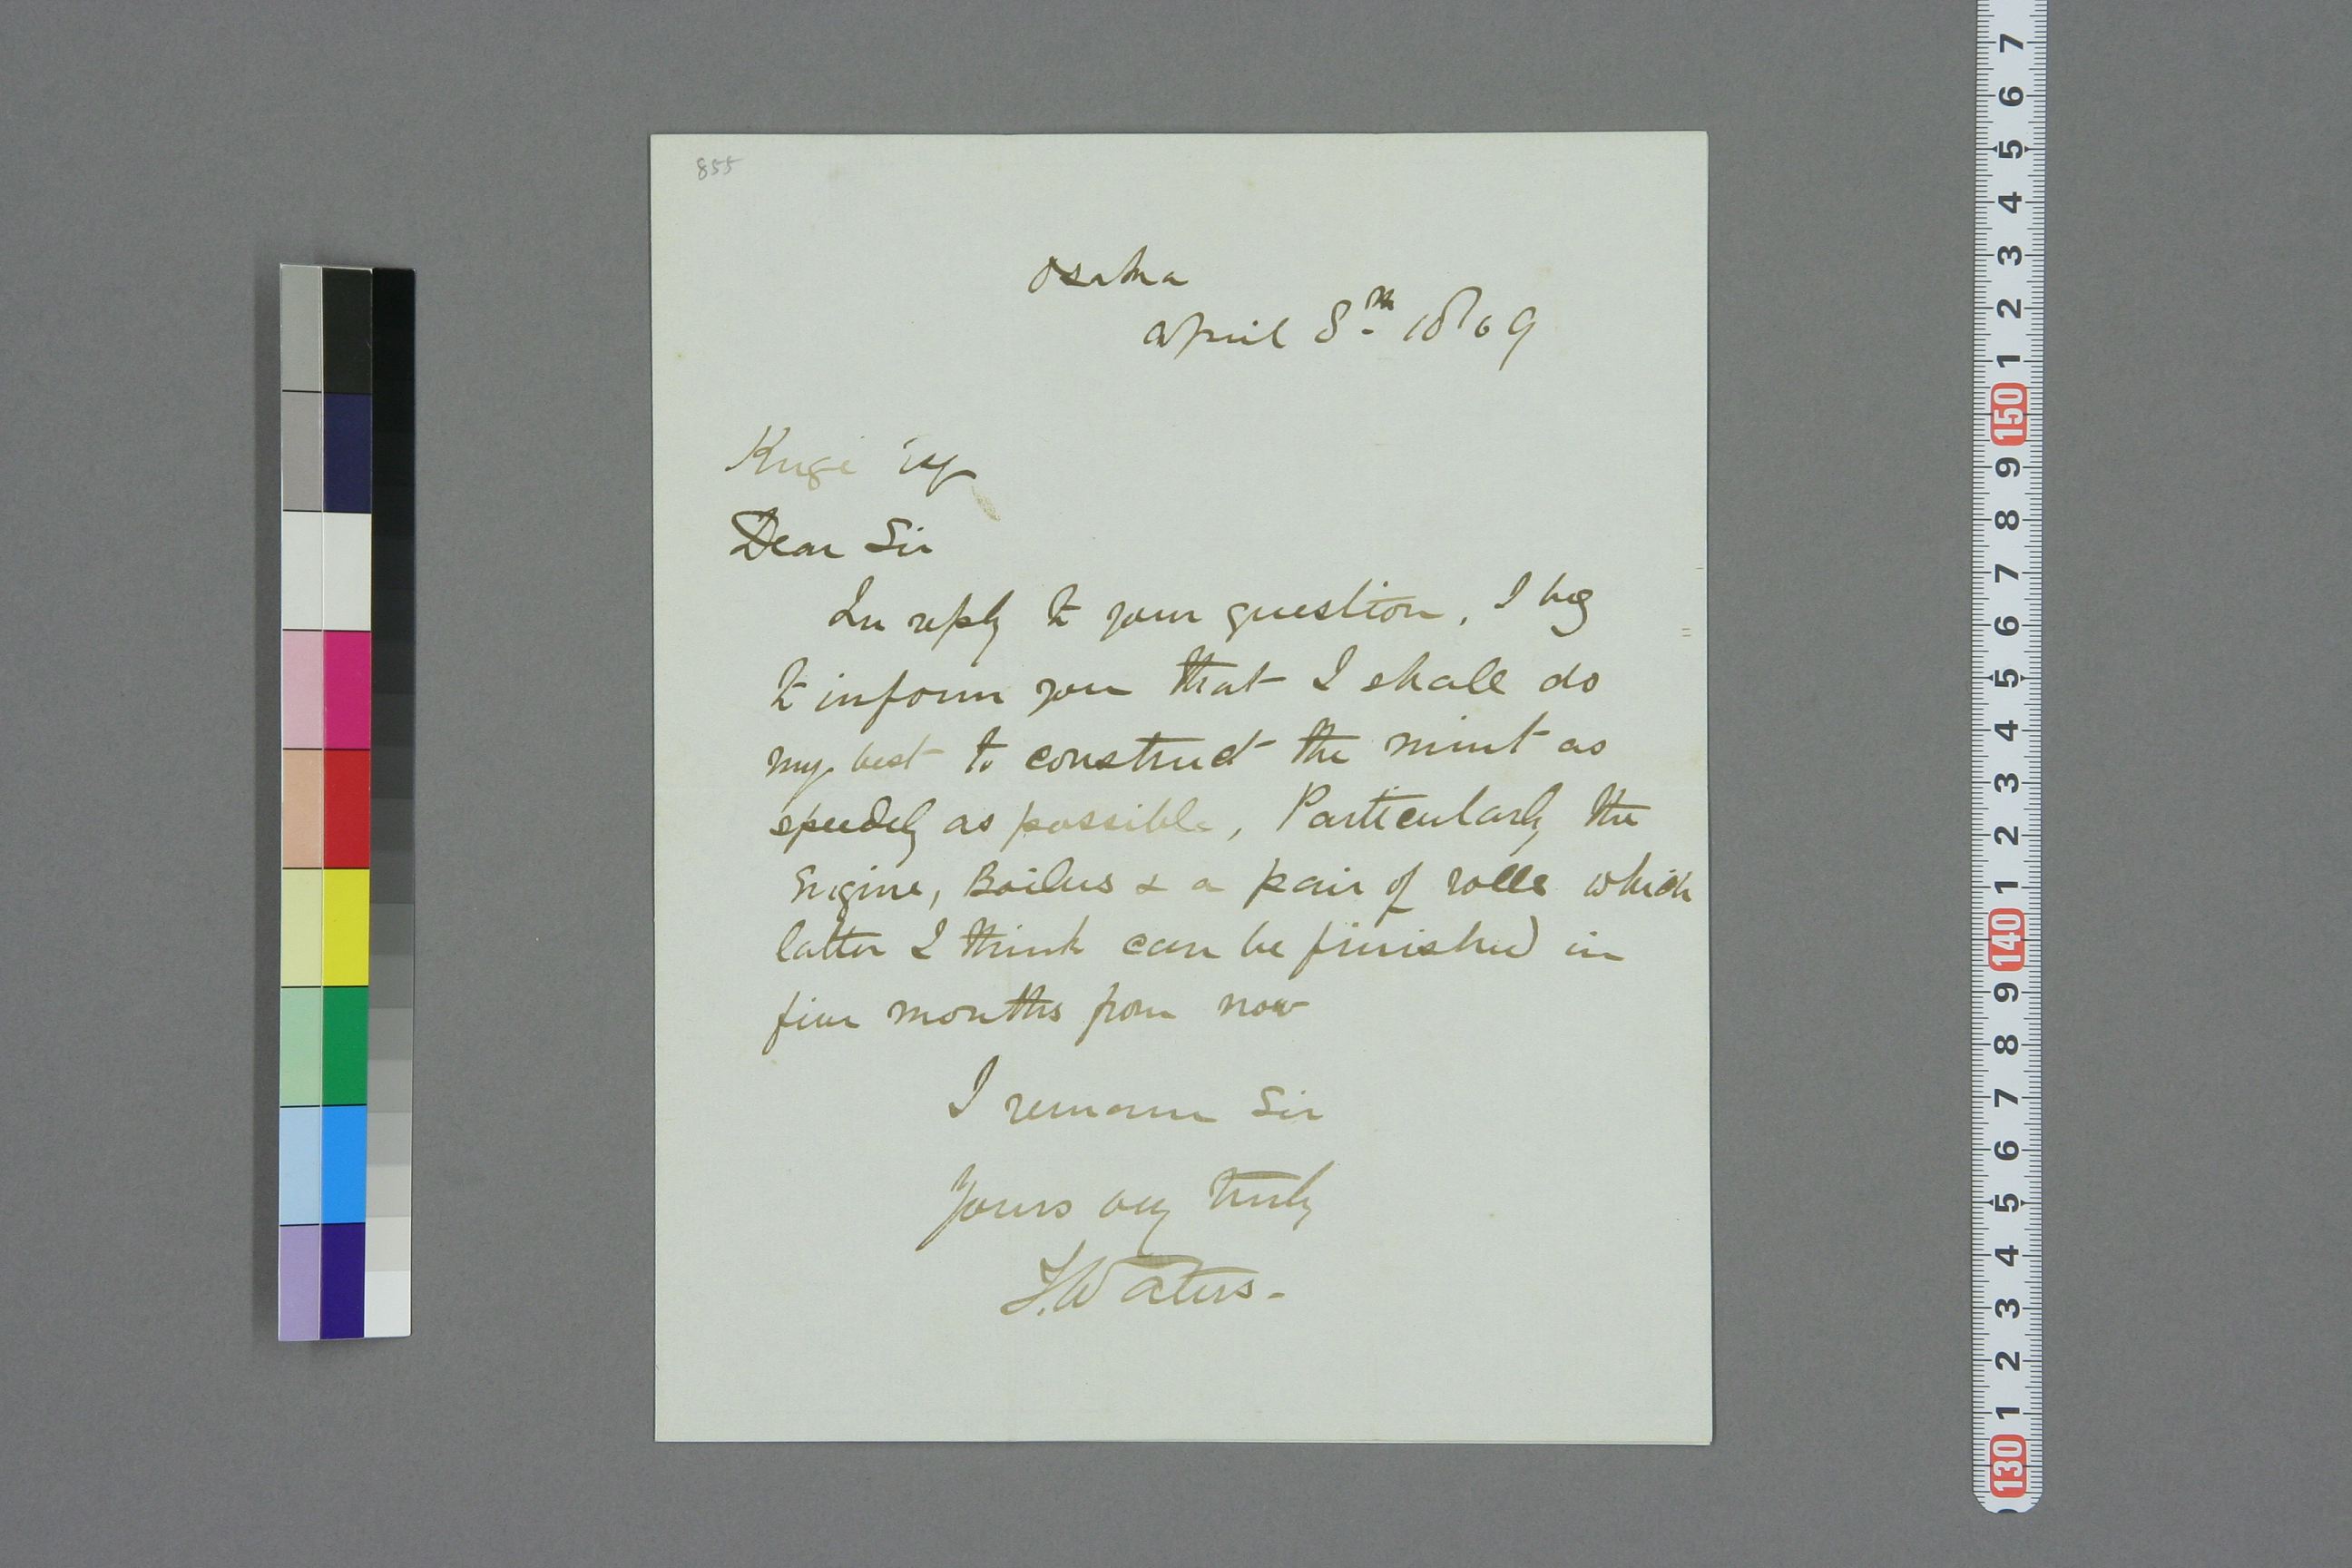 855
Osaka
April 8th 1869
Kugi Esq
Dear Sir
In reply to your question, I beg
to inform you that I shall do
my best to construct the mint as
speedily as possible, Particularly the
Engine, Boilers & a pair of rolls which
latter I think can be finished in
five months from now
I remain Sir
Yours very truly
T. Waters.
7
6
5
4
3
2
1
150
9
8
7
6
5
4
3
2
1
140
9
8
7
6
5
4
3
2
1
130